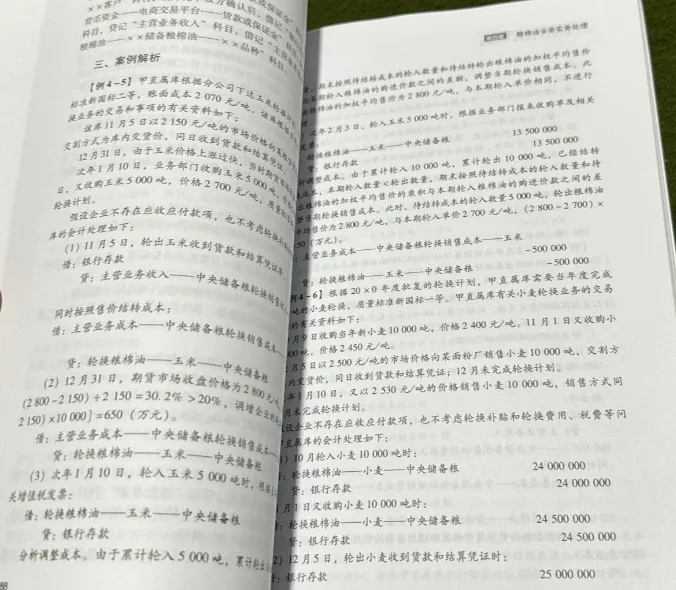 ××客户"科
货币资金——电商交易平台——货款或保证金"科
科目，贷记"主营业务收入"科目，借记"主营业务
粮棉油——××储备粮棉油——××品种"科目
三、案例解析
【例4-5】甲直属库根据分公司下达玉米轮换
标准新国标二等，账面成本2 070元/吨，该库
换业务的交易和事项的有关资料如下：
该库11月5日以2 150元/吨的市场价格向
交割方式为库内交货价，同日收到货款和结算凭证
12月31日，由于玉米价格上涨过快，当时期货市场
次年1月10日，业务部门收购玉米5 000吨，价格
日，又收购玉米5 000吨，价格2 700元/吨，质量
轮换计划。
假设企业不存在应收应付款项，也不考虑轮换补贴
库的会计处理如下：
(1) 11月5日，轮出玉米收到货款和结算凭证
借：银行存款
贷：主营业务收入——中央储备粮轮换销售
同时按照售价结转成本：
借：主营业务成本——中央储备粮轮换销售成本
贷：轮换粮棉油——玉米——中央储备粮
(2) 12月31日，期货市场收盘价格为2 800元/吨
(2 800-2 150)÷2 150=30.2%＞20%，调增企业的
2 150)×10 000]=650（万元）。
借：主营业务成本——中央储备粮轮换销售成本
贷：轮换粮棉油——玉米——中央储备粮
(3) 次年1月10日，轮入玉米5 000吨时，根据
关增值税发票：
借：轮换粮棉油——玉米——中央储备粮
贷：银行存款
分析调整成本。由于累计轮入5 000吨，累计轮出
88
粮棉油业务实务处理
期末按照待结转成本的轮入数量和待结转轮出粮棉油的加权平均售价
与本期轮入粮棉油的购进价款之间的差额，调整当期轮换销售成本。此
粮棉油的加权平均售价为2 800元/吨，与本期轮入单价相同，不进行
次年2月3日，轮入玉米5 000吨时，根据业务部门报来收购单及相关
发票：
轮换粮棉油——玉米——中央储备粮 13 500 000
贷：银行存款 13 500 000
析调整成本。由于累计轮入10 000吨，累计轮出10 000吨，已经结转
成本，本期轮入数量＜轮出数量，期末按照待结转成本的轮入数量和待
出粮棉油的加权平均售价的乘积与本期轮入粮棉油的购进价款之间的差
整当期轮换销售成本。此时，待结转成本的轮入数量5 000吨，轮出粮棉油
平均售价为2 800元/吨，与本期轮入单价2 700元/吨，(2 800-2 700)×
50（万元）。
：主营业务成本——中央储备粮轮换销售成本——玉米
-500 000
贷：轮换粮棉油——玉米——中央储备粮 -500 000
例4-6】根据20×0年度批复的轮换计划，甲直属库需要当年度完成
吨的小麦轮换，质量标准新国标一等。甲直属库有关小麦轮换业务的交易
的有关资料如下：
月9日收购当年新小麦10 000吨，价格2 400元/吨。11月1日又收购小
000吨，价格2 450元/吨。
月5日以2 500元/吨的市场价格向某面粉厂销售小麦10 000吨，交割方
库内交货价，同日收到货款和结算凭证；12月末完成轮换计划。
年1月10日，又以2 530元/吨的价格销售小麦10 000吨，销售方式同
月末完成轮换计划。
设企业不存在应收应付款项，也不考虑轮换补贴和轮换费用、税费等问
甲直属库的会计处理如下：
) 10月轮入小麦10 000吨时：
：轮换粮棉油——小麦——中央储备粮 24 000 000
贷：银行存款 24 000 000
月1日又收购小麦10 000吨时：
：轮换粮棉油——小麦——中央储备粮 24 500 000
贷：银行存款 24 500 000
2) 12月5日，轮出小麦收到货款和结算凭证时：
：银行存款 25 000 000